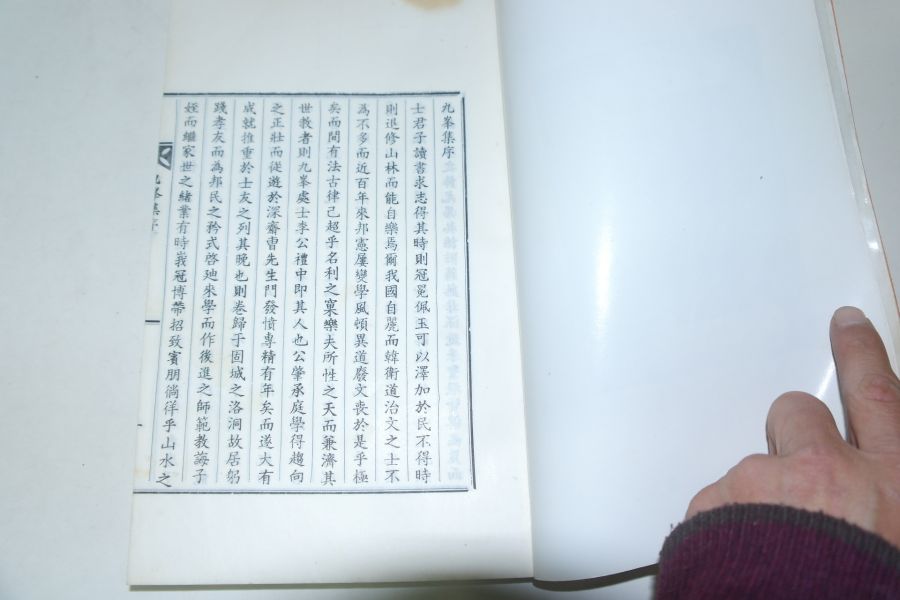 九峯集序
士君子讀書求志得其時則冠冕佩玉可以澤加於民不得時
則退修山林而能自樂焉爾我國自麗而韓衛道治文之士不
為不多而近百年來邦憲屢變學風頓異道廢文喪於是乎極
矣而間有法古律己超乎名利之窠樂夫所性之天而兼濟其
世敎者則九峯處士李公禮中即其人也公肇承庭學得趨向
之正壯而從遊於深齋曺先生門發憤專精有年矣而遂大有
成就推重於士友之列其晚也則卷歸于固城之洛洞故居躬
踐孝友而為邦民之矜式啓廸來學而作後進之師範敎誨子
姪而繼家世之緒業有時峩冠博帶招致賓朋倘徉乎山水之
九峯集序